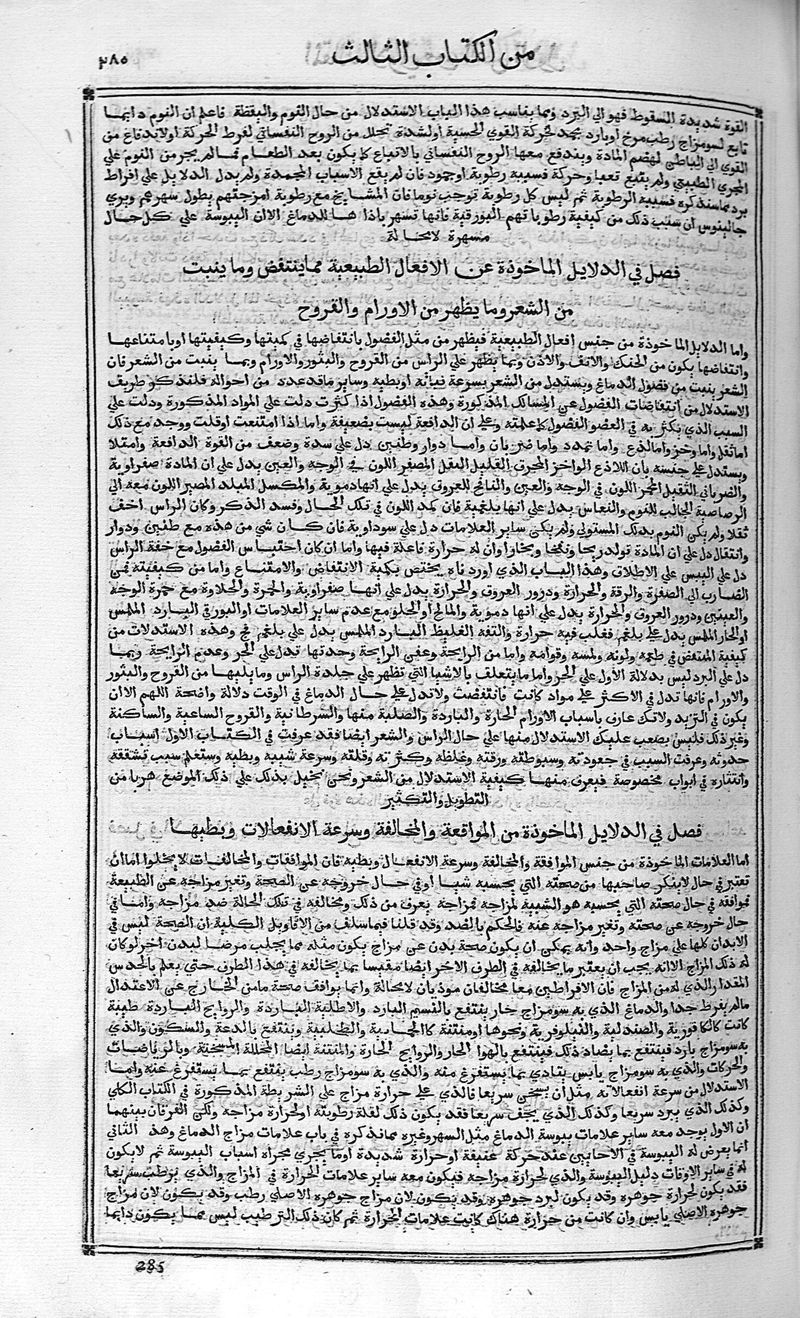 ٢٨٥ من الكتاب الثالث
القوة شديدة السقوط فهو الي البرد ومما يناسب هذا الباب الاستدلال من حال النوم واليقظة فاعلم ان النوم دايما
تابع لسو مزاج رطب مرخ او بارد يجمد لحركة القوي الحسية او لشدة تحلل من الروح النفساني لفرط الحركة او لاندفاع من
القوي الي الباطن لهضم المادة ويندفع معها الروح النفساني بالاتباع كما يكون بعد الطعام فما لم يجر من النوم علي
المجري الطبيعي ولم يتبع تعبا وحركة فسببه رطوبة او جمود فان لم يقع الاسباب المجمدة ولم يدل الدلايل علي افراط
برد مما سنذكره فسببه الرطوبة ثم ليس كل رطوبة توجب نوما فان المشايخ مع رطوبة امزجتهم يطول سهرهم ويري
جالينوس ان سبب ذلك من كيفية رطوباتهم البورقية فانها تسهر باذاها للدماغ الا ان اليبوسة علي كل حال
مسهرة لا محالة
فصل في الدلايل الماخوذة عن الافعال الطبيعية مما ينتفض وما ينبت
من الشعر وما يظهر من الاورام والقروح
واما الدلايل الماخوذة من جنس افعال الطبيعية فيظهر من مثل الفضول بانتفاضها في كميتها وكيفيتها او بامتناعها
وانتفاضها يكون من الحنك والانف والاذن وبما يظهر علي الراس من القروح والبثور والاورام وبما ينبت من الشعر فان
الشعر ينبت من فضول الدماغ ويستدل من الشعر بسرعة نباته او بطيه وساير ما قد عدد من احواله فلنذكر طريق
الاستدلال من انتفاضات الفضول عن المسالك المذكورة وهذه الفضول اذا كثرت دلت علي المواد المذكورة ودلت علي
السبب الذي يكثر به في العضو الفضول كما علمته وعلي ان الدافعة ليست بضعيفة واما اذا امتنعت او قلت ووجد مع ذلك
اما ثقل واما وخز واما لذع واما تمدد واما ضربان واما دوار وطنين دل علي سدة وضعف من القوة الدافعة وامتلا
ويستدل علي جنسه بان اللاذع الواخز المحرق القليل الثقل المصفر اللون في الوجه والعين يدل علي ان المادة صفراوية
والضرباني الثقيل المحمر اللون في الوجه والعين والنافخ للعروق يدل علي انها دموية والمكسل المبلد المصير اللون معه الي
الرصاصية الجالب للنوم والنعاس يدل علي انها بلغمية فان كمد اللون في تلك الحال وفسد الذكر وكان الراس اخف
ثقلا ولم يكن النوم بذلك المستولي ولم يكن ساير العلامات دل علي سوداوية فان كان شي من هذه مع طنين ودوار
وانتقال دل علي ان المادة تولد ريحا ونفخا وبخارا وان له حرارة فاعلة فيها واما ان كان احتباس الفضول مع خفة الراس
دل علي اليبس علي الاطلاق وهذا الباب الذي اوردناه يختص بكمية الانتفاض والامتناع واما من كيفيته فمن
الضارب الي الصفرة والرقة والحرارة ودرور العروق والحرارة يدل علي انها صفراوية والحمرة والحلاوة مع حمرة الوجه
والعينين ودرور العروق والحرارة يدل علي انها دموية والمالح او الحلو مع عدم ساير العلامات او البورقي البارد الملمس
او الحار الملمس يدل علي بلغم فغلب فيه حرارة والتفه الغليظ البارد الملمس يدل علي بلغم فج وهذه الاستدلالات من
كيفية المنتفض في طعمه ولونه ولمسه وقوامه واما من الرايحة وعفن الرايحة وحدتها تدل علي الحر وعدم الرايحة وبما
دل علي البرد ليس بدلالة الاول علي الحر واما ما يتعلف بالاشيا التي تظهر علي جلدة الراس وما يليها من القروح والبثور
والاورام فانها تدل في الاكثر علي مواد كانت فانتفضت ولا تدل علي حال الدماغ في الوقت دلالة واضحة اللهم الا ان
يكون في التزيد ولانك عارف باسباب الاورام الحارة والباردة والصلبة منها والسرطانية والقروح الساعية والساكنة
وغير ذلك فليس يصعب عليك الاستدلال منها علي حال الراس والشعر ايضا فقد عرفت في الكتاب الاول اسباب
حدوثه وعرفت السبب في جعودته وسبوطته ورقته وغلظه وكثرته وقلته وسرعة شيبه وبطيه وستعلم سبب تشققه
وانتثاره في ابواب مخصوصة فيعرف منها كيفية الاستدلال من الشعر ونحن نحيل بذلك علي ذلك الموضع هربا من
التطويل والتكثير
فصل في الدلايل الماخوذة من المواقعة والمخالفة وسرعة الانفعالات وبطيها
اما العلامات الماخوذة من جنس الموافقة والمخالفة وسرعة الانفعال وبطيه فان الموافقات والمخالفات لا يخلوا اما ان
تعتبر في حال لا ينكر صاحبها من صحته التي يحسبه شيا او في حال خروجه عن الصحة وتغير مزاجه عن الطبيعة
فموافقه في حال صحته التي يحسبه هو الشبيه لمزاجه فمزاجه يعرف من ذلك ومخالفه في تلك الحالة ضد مزاجه واما في
حال خروجه عن صحته وتغير مزاجه عنه فالحكم بالضد وقد قلنا فيما سلف من الاقاويل الكلية ان الصحة ليس في
الابدان كلها علي مزاج واحد وانه يمكن ان يكون صحة بدن عن مزاج يكون مثله مما يجلب مرضا لبدن اخر لو كان
له ذلك المزاج الا انه يجب ان يعتبر ما يخالفه في الطرف الاخر ايضا مقيسا بما يخالفه في هذا الطرف حتي يعلم بالحدس
المقدار الذي له من المزاج فان الافراطين معا مخالفان موذيان لا محالة وانما يوافق صحة ما من الخارج عن الاعتدال
ما لم يفرط جدا والدماغ الذي به سو مزاج حار ينتفع بالنسيم البارد والاطلية الباردة والروايح الباردة طيبة
كانت كالكافورية والصندلية والنيلوفرية ونحوها او منتنة كالحمايية والطحلبية وينتفع بالدعة والسكون والذي
به سو مزاج بارد فينتفع بما يضاد ذلك فينتفع بالهوا الحار والروايح الحارة والمنتنة ايضا المحللة المسخنة وبالرياضات
والحركات والذي به سو مزاج يابس يتاذي بما يستفرغ منه والذي به سو مزاج رطب ينتفع بما يستفرغ عنه واما
الاستدلال من سرعة انفعالاته مثل ان يسخن سريعا فالذي علي حرارة مزاج علي الشريطة المذكورة في الكتاب الكلي
وكذلك الذي يبرد سريعا وكذلك الذي يجف سريعا فقد يكون ذلك لقلة رطوبته او لحرارة مزاجه ولكن الفرقان بينهما
ان الاول يوجد معه ساير علامات يبوسة الدماغ مثل السهر وغيره مما نذكره في باب علامات مزاج الدماغ وهذا الثاني
انما يعرض له اليبوسة في الاحايين عند حركة عنيفة او حرارة شديدة او ما يجري مجراه اسباب اليبوسة ثم لا يكون
له في ساير الاوقات دليل اليبوسة والذي لحرارة مزاجه فيكون معه ساير علامات الحرارة في المزاج والذي يرطب سريعا
فقد يكون لحرارة جوهره وقد يكون لبرد جوهره وقد يكون لان مزاج جوهره الاصلي رطب وقد يكون لان مزاج
جوهره الاصلي يابس وان كانت من حرارة هناك كانت علامات الحرارة ثم كان ذلك الترطيب ليس مما يكون دايما
285